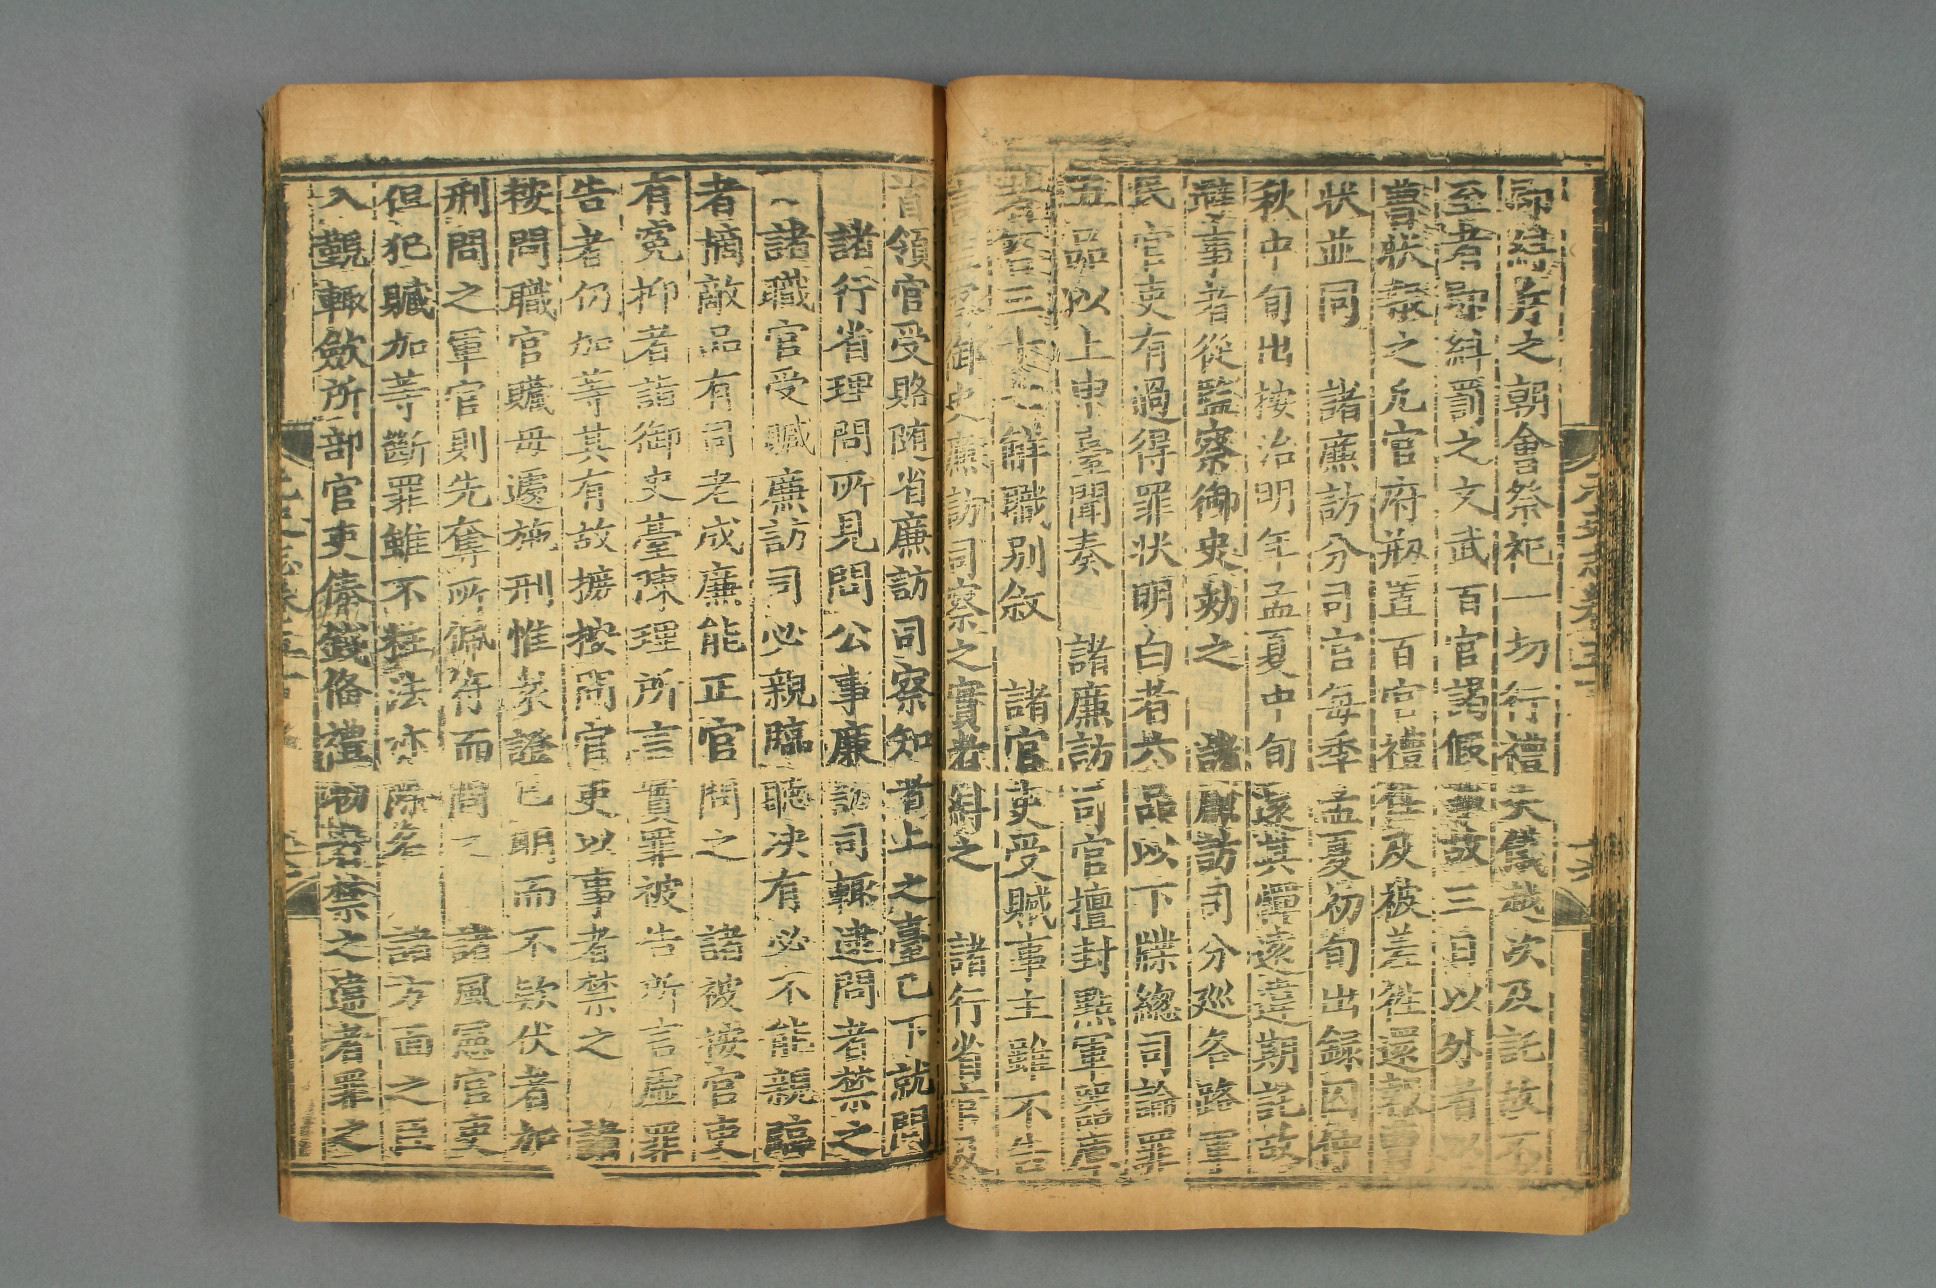 即結斧之朝會祭祀一切行禮失儀越次及託故不
至者即糾罰之文武百官謁假事故三日以外者以
曹狀報之凡官府剏置百官禮任及被差往還報曹
狀並同　諸廉訪分司官每季孟夏初旬出錄囚仲
秋中旬出按治明年孟夏中旬還其憚遠違期託故
避事者從監察御史劾之　諸廉訪司分巡各路軍
民官吏有過得罪狀明白者六品以下牒總司論罪
五品以上申臺聞奏　諸廉訪司官擅封點軍器庫
者笞三十七解職別敘　諸官吏受贓事主雖不告
言監察御史廉訪司察之實者糾之　諸行省官及
首領官受賂隨省廉訪司察知者上之臺已下就問
諸行省理問所見問公事廉訪司輒逮問者禁之
諸職官受贓廉訪司必親臨聽決有必不能親臨
者摘敵品有司老成廉能正官問之　諸被按官吏
有冤抑者詣御史臺陳理所言實罪被告所言虛罪
告者仍加等其有故摭按問官吏以事者禁之　諸
按問職官贓毋遽施刑惟衆證已明而不款伏者加
刑問之軍官則先奪所佩符而問之　諸風憲官吏
但犯贓加等斷罪雖不枉法亦除名　諸方面之臣
入覲輒斂所部官吏俸錢備禮物者禁之違者罪之